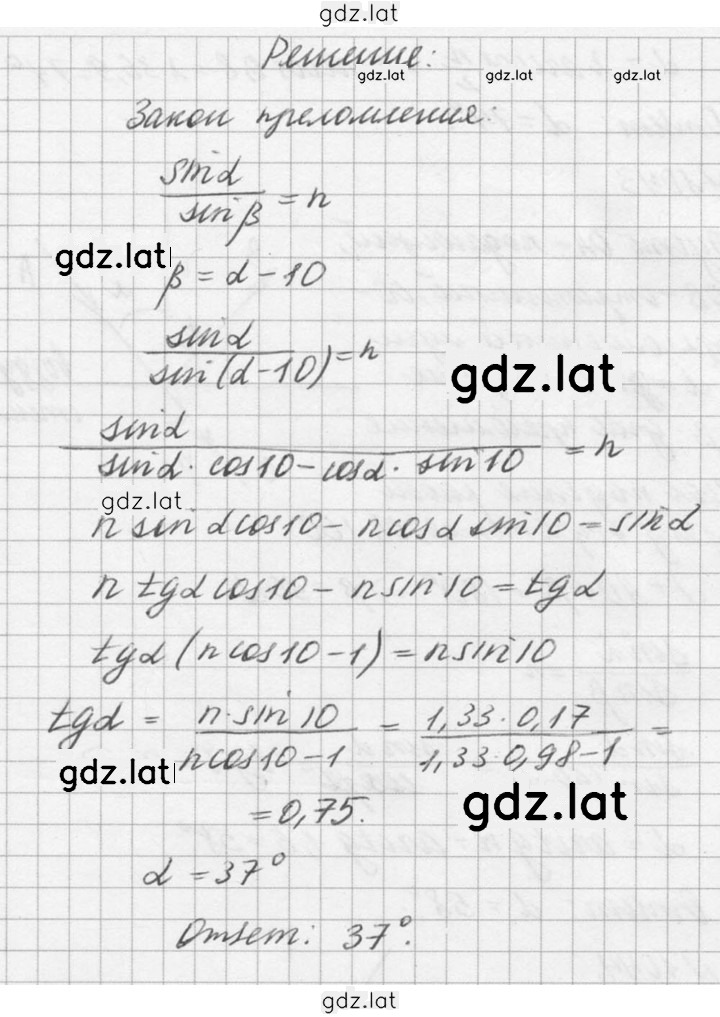 gdz.lat
Решение:
gdz.lat gdz.lat gdz.lat
Закон преломления:
sinα / sinβ = n
gdz.lat
β = α - 10
sinα / sin(α-10) = n
gdz.lat
sinα / sinα · cos10 - cosα · sin10 = n
gdz.lat
n sinα cos10 - n cosα sin10 = sinα
n tgα cos10 - n sin10 = tgα
tgα (n cos10 - 1) = n sin10
tgα = n·sin10 / n cos10 - 1 = 1,33·0,17 / 1,33·0,98-1 =
gdz.lat
= 0,75.
gdz.lat
α = 37°
Ответ: 37°.
gdz.lat